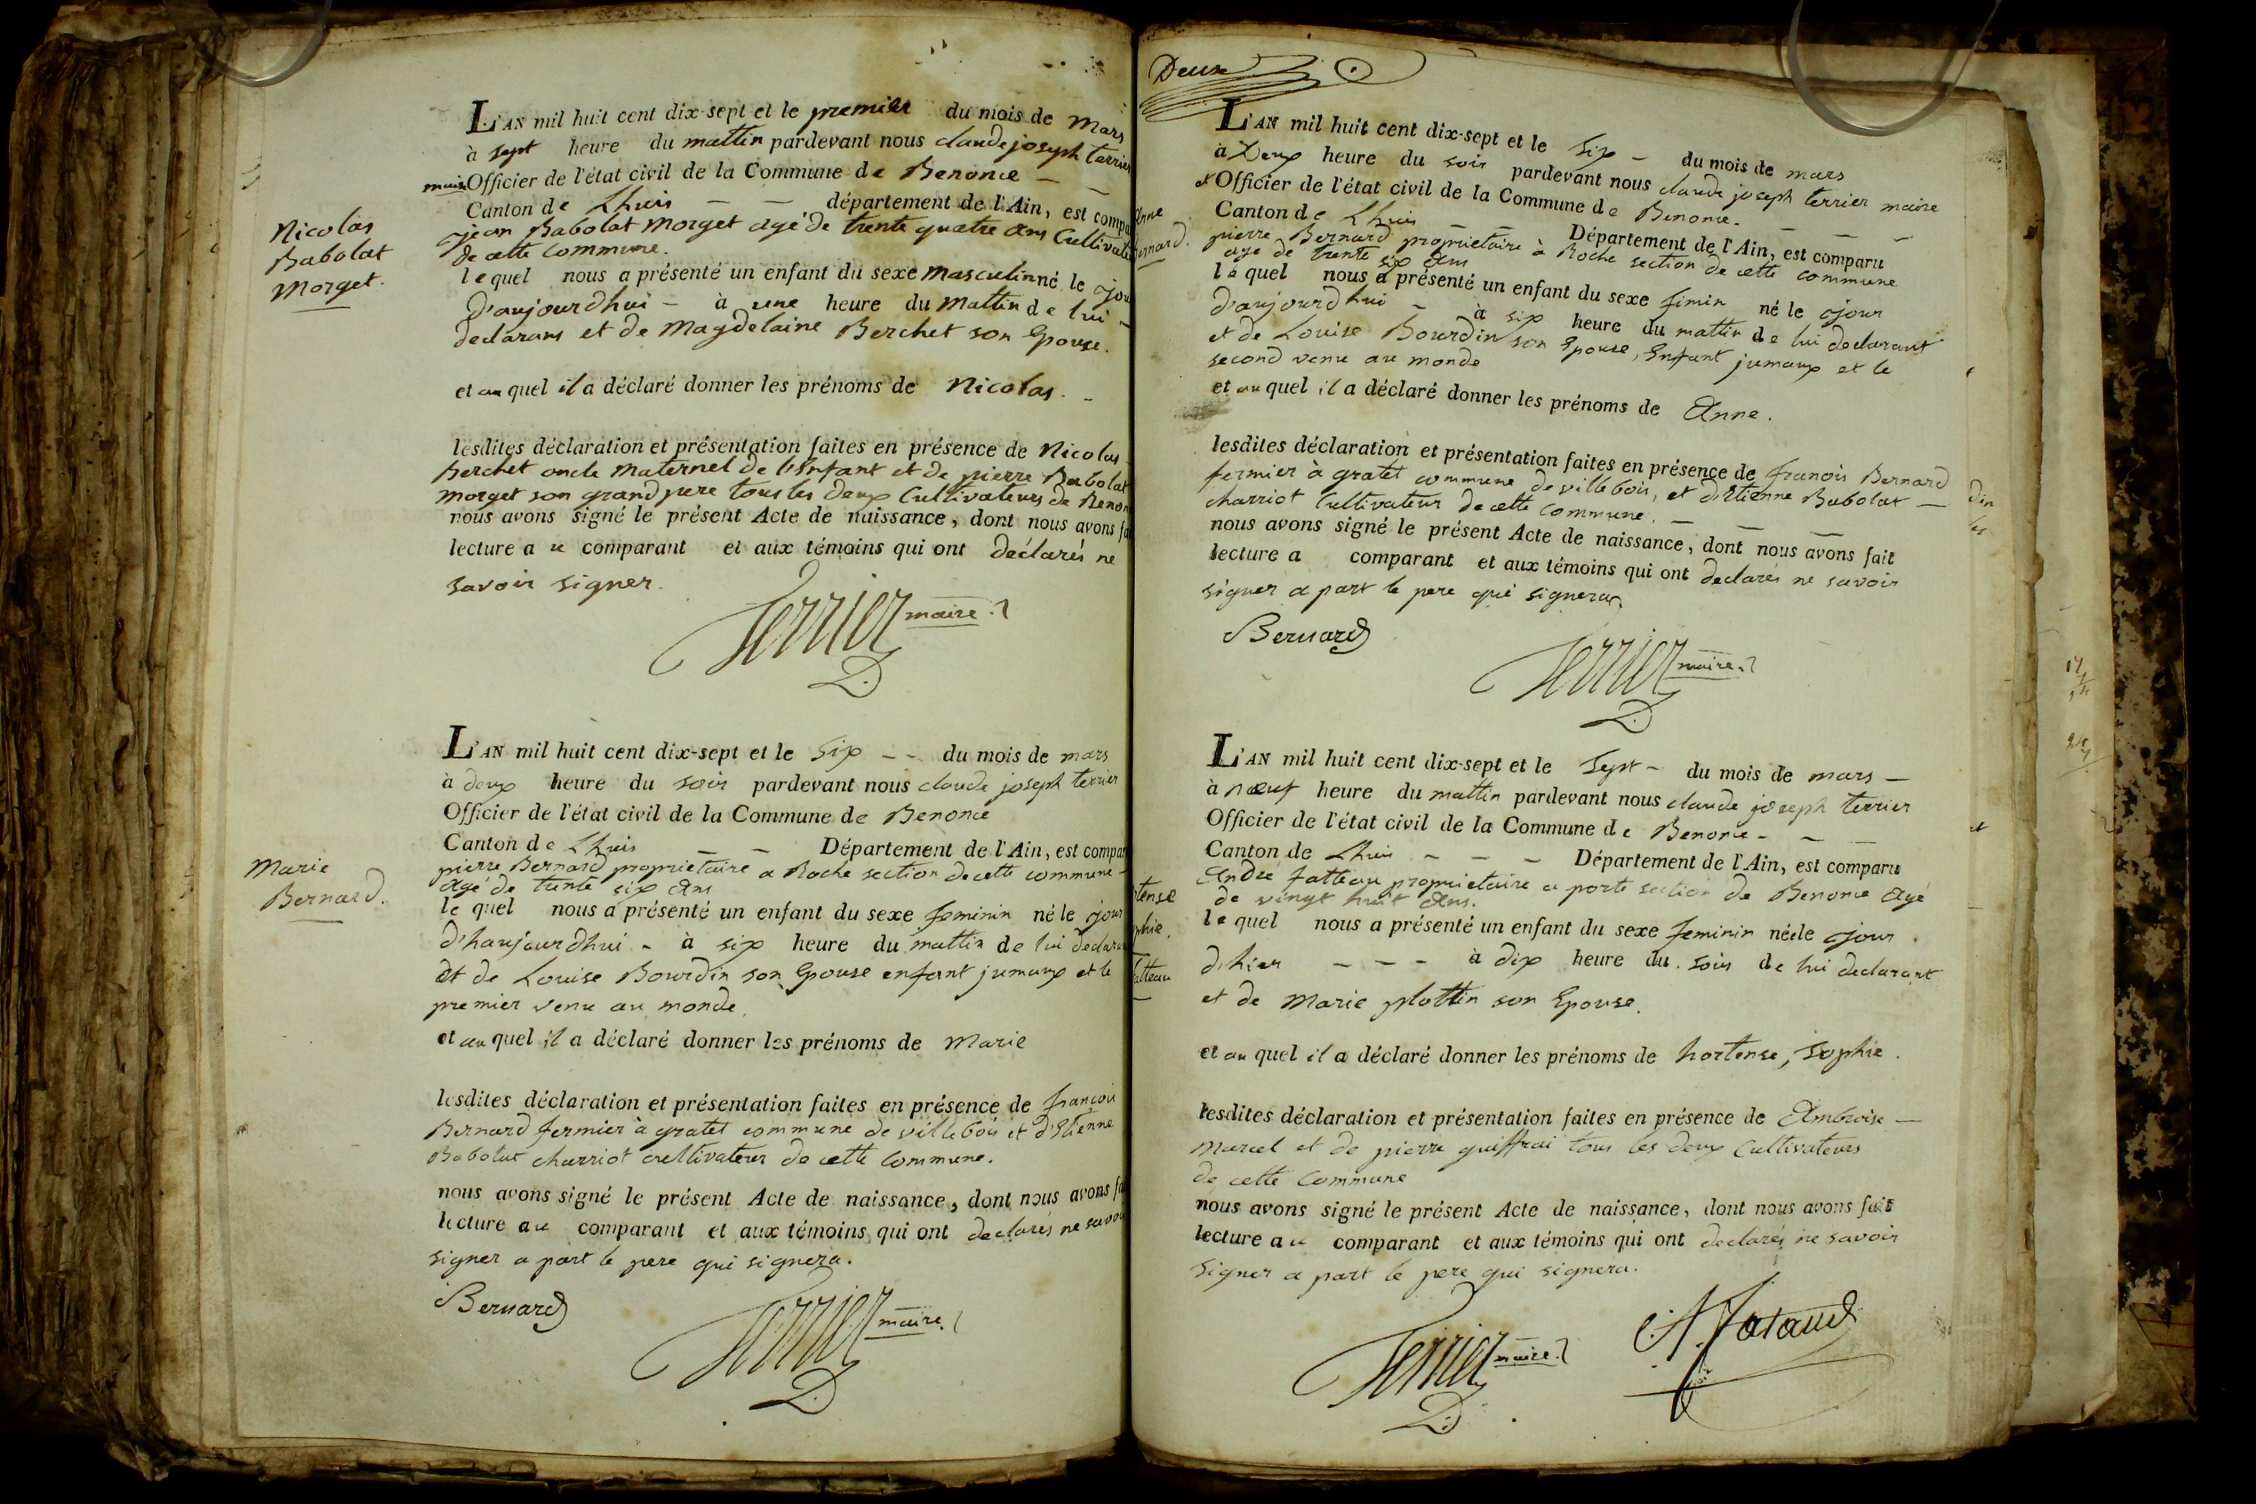 L'AN mil huit cent dix-sept et le premier du mois de mars
à sept heure du mattin pardevant nous claude joseph terrier
maire Officier de l'état civil de la Commune de Benonce
Canton de Lhuis département de l'Ain, est compa
jean Babolat Morget agé de trente quatre ans Cultivate
de cette commune.
lequel nous a présenté un enfant du sexe masculin né le jou
d'aujourdhui à une heure du mattin de lui
declarans et de Magdelaine Berchet son Epouse.
et au quel il a déclaré donner les prénoms de Nicolas.
Nicolas
Babolat
Morget.
lesdites déclaration et présentation faites en présence de Nicolas
berchet oncle maternel de l'Enfant et de pierre Babolat
morget son grand pere tous les deux Cultivateurs de Benon
nous avons signé le présent Acte de naissance, dont nous avons fa
lecture au comparant et aux témoins qui ont declarés ne
savoir signer.
Terrier maire
L'AN mil huit cent dix-sept et le six du mois de mars
à deux heure du soir pardevant nous claude joseph terrier
Officier de l'état civil de la Commune de Benonce
Canton de Lhuis Département de l'Ain, est compar
pierre Bernard proprietaire a Roche section de cette commune
agé de trente six ans
le quel nous a présenté un enfant du sexe feminin né le jour
d'haujourdhui à six heure du mattin de lui declara
et de Louise Bourdin son Epouse enfant jumaux et le
premier venu au monde.
et au quel il a déclaré donner les prénoms de Marie
Marie
Bernard.
lesdites déclaration et présentation faites en présence de françois
Bernard fermier à gratet commune de villebois et d'Etienne
Babolat charriot cultivateur de cette commune.
nous avons signé le présent Acte de naissance, dont nous avons fa
lecture au comparant et aux témoins qui ont declarés ne savoi
signer a part le pere qui signera.
Bernard
Terrier maire
Deux
L'AN mil huit cent dix-sept et le six du mois de mars
à Deux heure du soir pardevant nous claude joseph terrier maire
et Officier de l'état civil de la Commune de Benonce.
Canton de Lhuis Département de l'Ain, est comparu
pierre Bernard proprietaire à Roche section de cette commune
age de trente six ans
le quel nous a présenté un enfant du sexe fimin né le jour
d'aujourdhui à six heure du mattin de lui declarant
et de Louise Bourdin son Epouse, Enfant jumaux et le
second venu au monde
et au quel il a déclaré donner les prénoms de Anne.
Anne
ernard.
lesdites déclaration et présentation faites en présence de françois Bernard
fermier à gratet commune de villebois, et d'Etienne Babolat
charriot Cultivateur de cette commune.
nous avons signé le présent Acte de naissance, dont nous avons fait
lecture a comparant et aux témoins qui ont declarés ne savoir
signer a part le pere qui signera.
Bernard
Terrier maire
L'AN mil huit cent dix-sept et le sept du mois de mars
à nœuf heure du mattin pardevant nous claude joseph terrier
Officier de l'état civil de la Commune de Benonce
Canton de Lhuis Département de l'Ain, est comparu
André fatteau proprietaire a porte section de Benonce Agé
de vingt huit ans.
le quel nous a présenté un enfant du sexe feminin née le jour
d'hier à dix heure du soir de lui declarant
et de Marie plottin son Epouse.
et au quel il a déclaré donner les prénoms de hortense, Sophie.
tense
phie.
atteau
lesdites déclaration et présentation faites en présence de Ambroise
Marcel et de pierre guiffrai tous les deux Cultivateurs
de cette Commune
nous avons signé le présent Acte de naissance, dont nous avons fait
lecture au comparant et aux témoins qui ont declarés ne savoir
signer a part le pere qui signera.
Terrier maire
A. Fataud